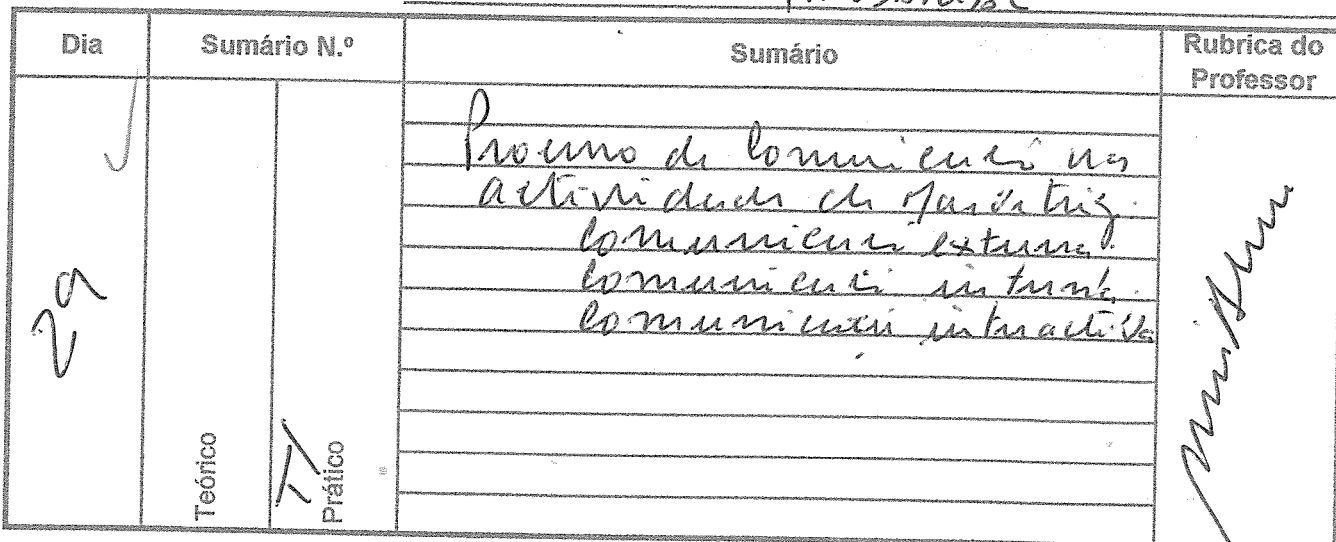 Dia
Sumário N.º
Sumário
Rubrica do
Professor
29
Teórico
Prático
Processo de Comunicação nas
actividades de
Comunicação externa.
Comunicação interna.
Comunicação interactiva